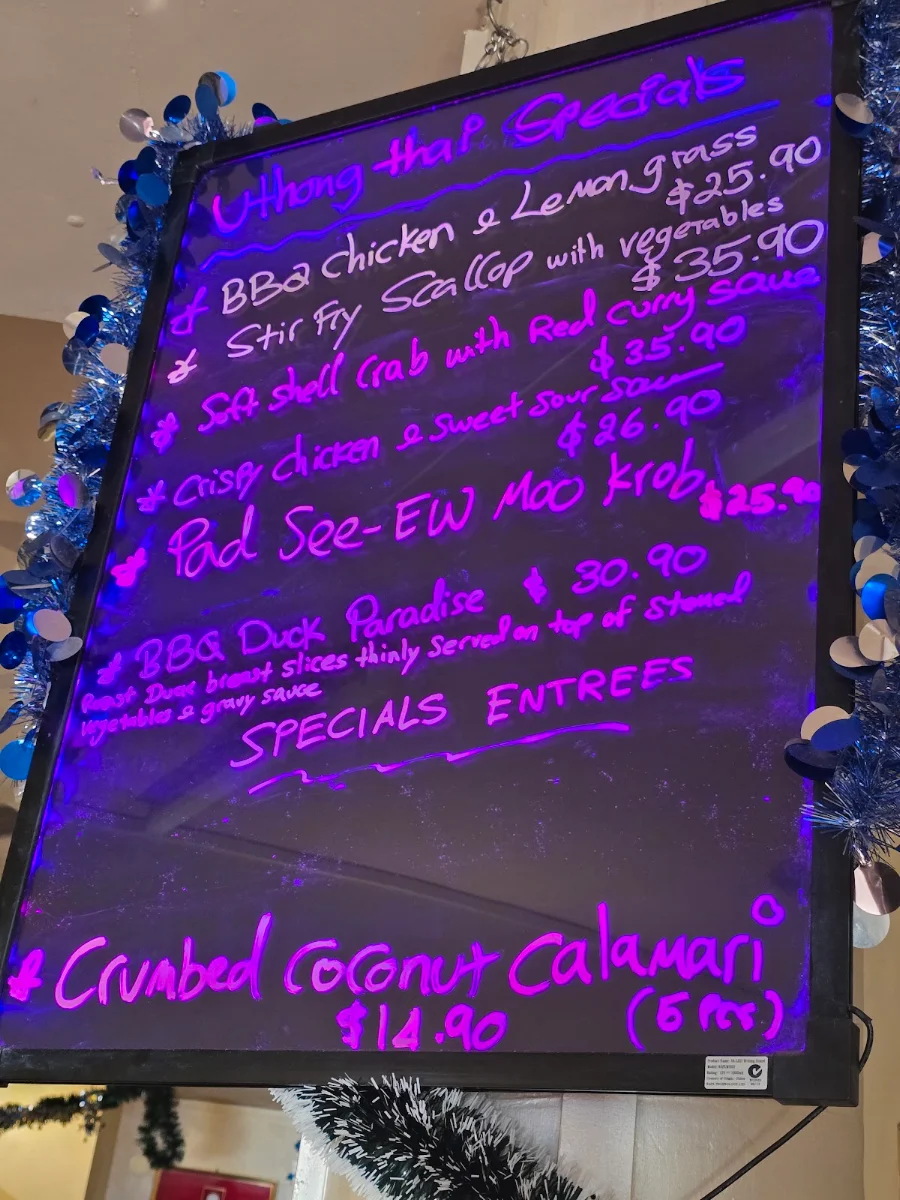 Uthong thai Specials
* BBQ chicken & Lemongrass
$25.90
* Stir Fry Scallop with vegetables
$35.90
* Soft shell Crab with Red curry sauce
$35.90
* Crispy chicken & sweet sour sauce
$26.90
* Pad See-EW Moo Krob $25.90
* BBQ Duck Paradise $30.90
Roast Duck breast slices thinly served on top of steamed
vegetables & gravy sauce
SPECIALS ENTREES
* Crumbed Coconut Calamari
$14.90 (5 Pcs)